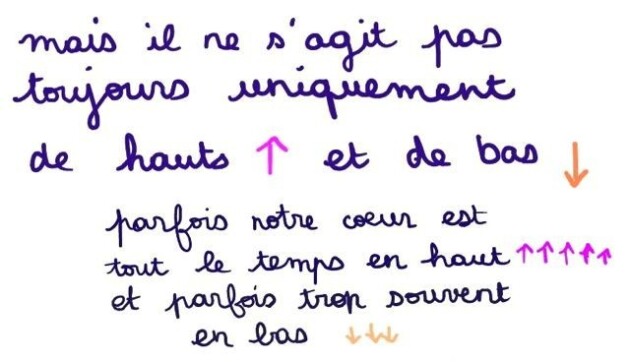 mais il ne s'agit pas
toujours uniquement
de hauts ↑ et de bas ↓
parfois notre coeur est
tout le temps en haut ↑↑↑↑↑
et parfois trop souvent
en bas ↓↓↓